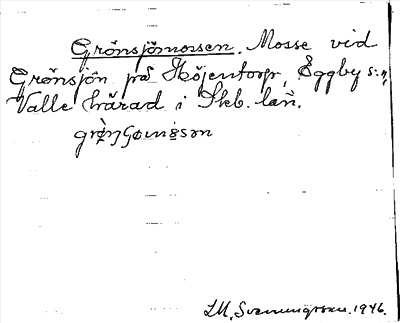 Grönsjömossen. Mosse vid
Grönsjön på Höjentorp, Eggby s:n,
Valle härad i Skb. län.
LM, Svenungsson. 1946.